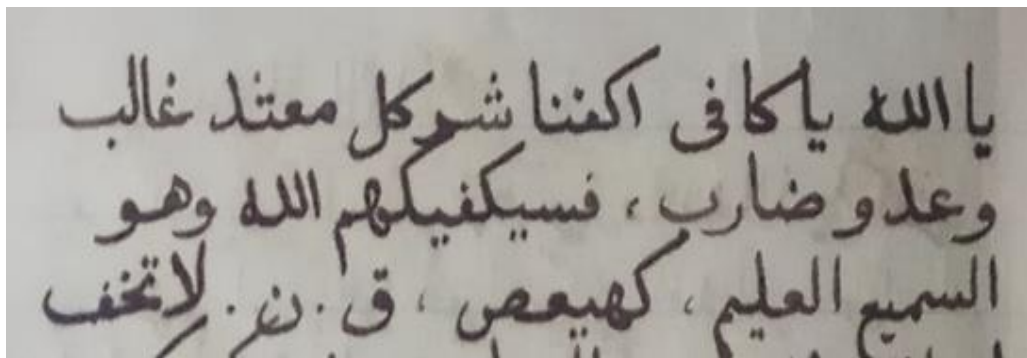 يا الله يا كافى اكفنا شر كل معتد غالب
وعدو ضارب ، فسيكفيكهم الله وهو
السميع العليم ، كهيعص ، ق . ن . لا تخف